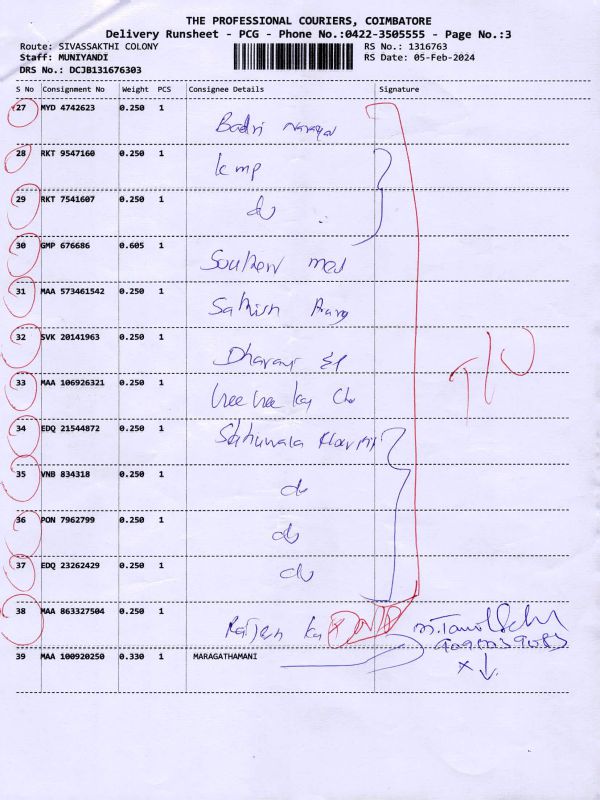 THE PROFESSIONAL COURIERS, COIMBATORE
Delivery Runsheet - PCG - Phone No.:0422-3505555 - Page No.:3
Route: SIVASSAKTHI COLONY RS No.: 1316763
Staff: MUNIYANDI RS Date: 05-Feb-2024
DRS No.: DCJB131676303
S No Consignment No Weight PCS Consignee Details Signature
27 MYD 4742623 0.250 1
Badri
28 RKT 9547160 0.250 1
kmp
29 RKT 7541607 0.250 1
do
30 GMP 676686 0.605 1
Southern med
31 MAA 573461542 0.250 1
Sathish
32 SVK 20141963 0.250 1
33 MAA 106926321 0.250 1
34 EDQ 21544872 0.250 1
35 VNB 834318 0.250 1
do
36 PON 7962799 0.250 1
do
37 EDQ 23262429 0.250 1
do
38 MAA 863327504 0.250 1
39 MAA 100920250 0.330 1 MARAGATHAMANI